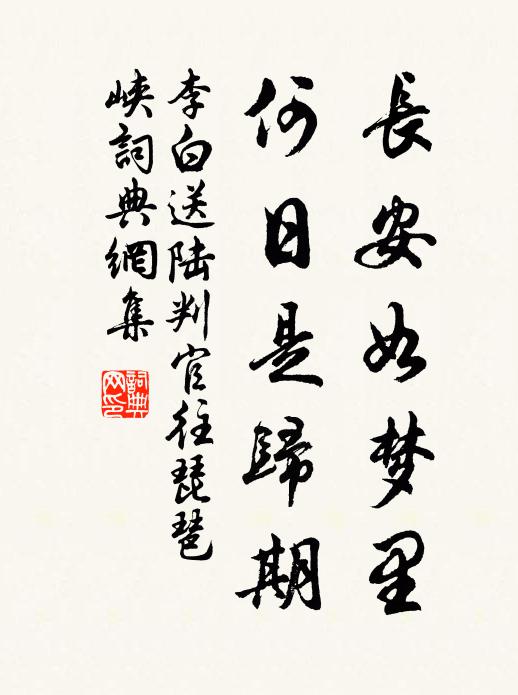 長安如梦里
何日是歸期
李白送陆判官往琵琶
峡詞典網集
詞典
网印